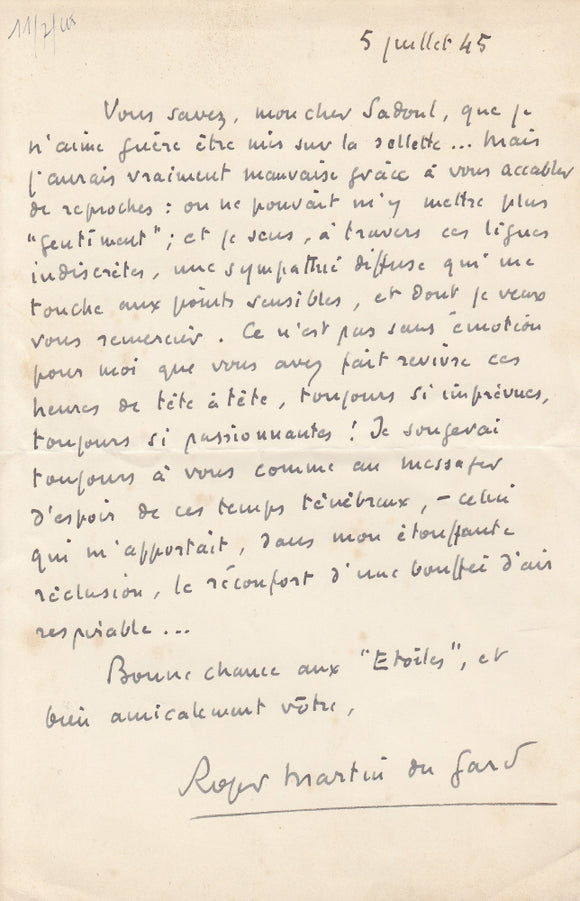 11/7/45
5 juillet 45
Vous savez, mon cher Sadoul, que je
n'aime guère être mis sur la sellette... Mais
j'aurais vraiment mauvaise grâce à vous accabler
de reproches : on ne pouvait m'y mettre plus
"gentiment" ; et je sens, à travers ces lignes
indiscrètes, une sympathie diffuse qui me
touche aux points sensibles, et dont je veux
vous remercier. Ce n'est pas sans émotion
pour moi que vous avez fait revivre ces
heures de tête à tête, toujours si imprévues,
toujours si passionnantes ! Je songerai
toujours à vous comme au messager
d'espoir de ces temps ténébreux, – celui
qui m'apportait, dans mon étouffante
réclusion, le réconfort d'une bouffée d'air
respirable...
Bonne chance aux "Etoiles", et
bien amicalement vôtre,
Roger Martin du Gard